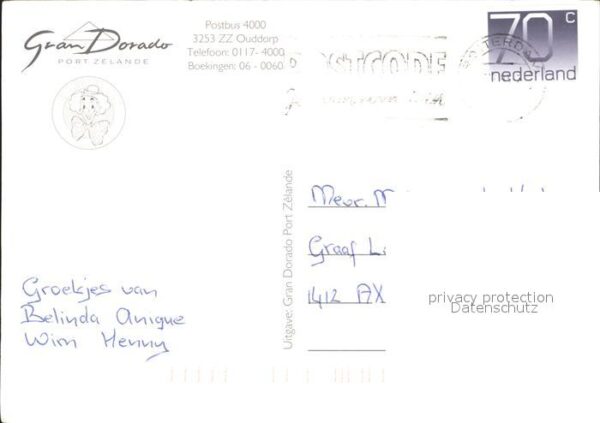 Gran Dorado
PORT ZÉLANDE
Postbus 4000
3253 ZZ Ouddorp
Telefoon: 0117- 4000
Boekingen: 06 - 0060
POSTCODE
70 c
nederland
Uitgave: Gran Dorado Port Zélande
Mevr.
Graaf L
1412 AX
privacy protection
Datenschutz
Groetjes van
Belinda Anique
Wim Henny